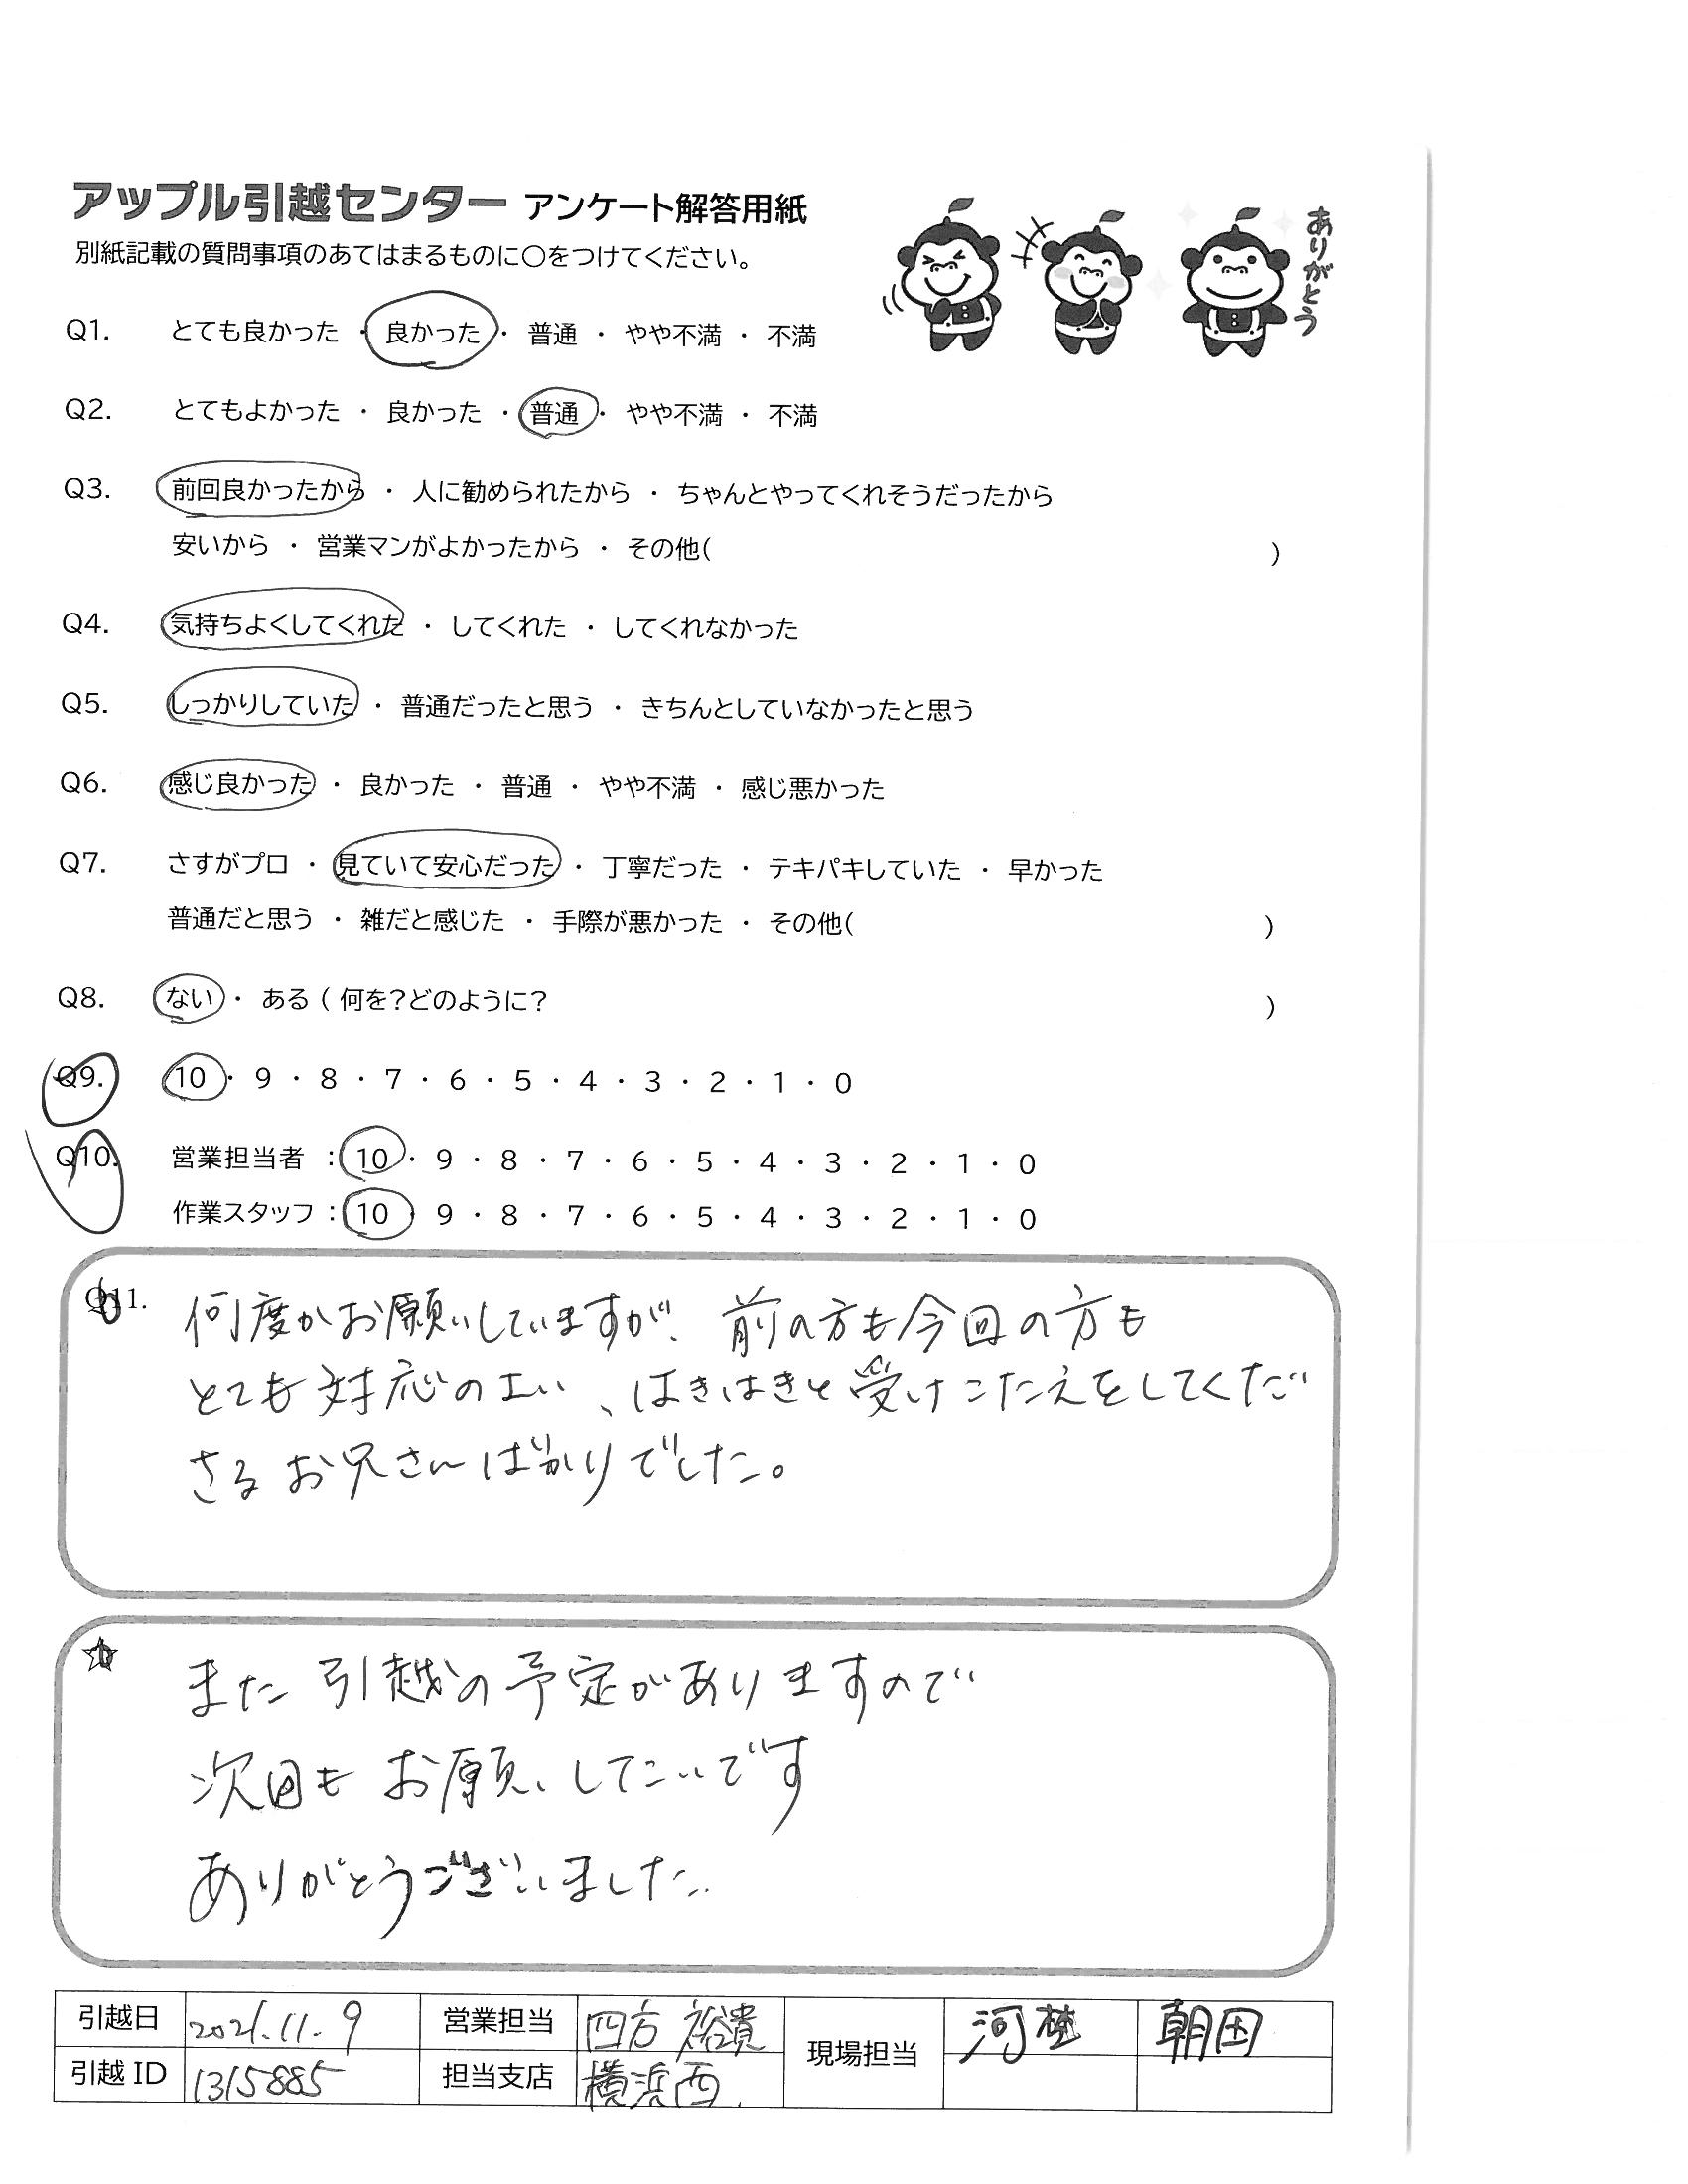 アップル引越センター アンケート解答用紙
別紙記載の質問事項のあてはまるものに〇をつけてください。
ありがとう
Q1. とても良かった ・ 良かった ・ 普通 ・ やや不満 ・ 不満
Q2. とてもよかった ・ 良かった ・ 普通 ・ やや不満 ・ 不満
Q3. 前回良かったから ・ 人に勧められたから ・ ちゃんとやってくれそうだったから
安いから ・ 営業マンがよかったから ・ その他( )
Q4. 気持ちよくしてくれた ・ してくれた ・ してくれなかった
Q5. しっかりしていた ・ 普通だったと思う ・ きちんとしていなかったと思う
Q6. 感じ良かった ・ 良かった ・ 普通 ・ やや不満 ・ 感じ悪かった
Q7. さすがプロ ・ 見ていて安心だった ・ 丁寧だった ・ テキパキしていた ・ 早かった
普通だと思う ・ 雑だと感じた ・ 手際が悪かった ・ その他( )
Q8. ない ・ ある ( 何を?どのように? )
Q9. 10 ・ 9 ・ 8 ・ 7 ・ 6 ・ 5 ・ 4 ・ 3 ・ 2 ・ 1 ・ 0
Q10. 営業担当者 : 10 ・ 9 ・ 8 ・ 7 ・ 6 ・ 5 ・ 4 ・ 3 ・ 2 ・ 1 ・ 0
作業スタッフ : 10 ・ 9 ・ 8 ・ 7 ・ 6 ・ 5 ・ 4 ・ 3 ・ 2 ・ 1 ・ 0
Q11. 何度かお願いしていますが、前の方も今回の方も
とても対応のよい、はきはきと受けこたえをしてくだ
さるお兄さんばかりでした。
また引越の予定がありますので
次回もお願いしたいです
ありがとうございました
引越日 2021.11.9 営業担当 四方 裕貴 現場担当 河 朝田
引越ID 1315885 担当支店 横浜西